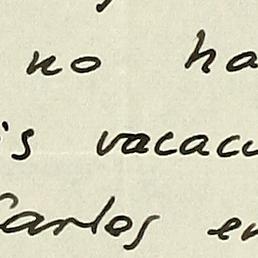 no ha
is vacacu
Carlos en